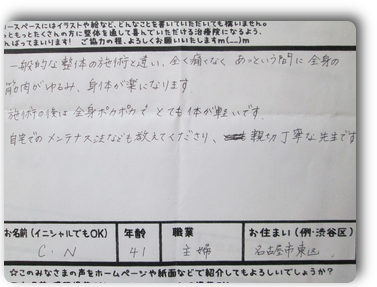 リースペースにはイラストや絵など、どんなことを書いていただいても構いません。
っともっとたくさんの方に整体を通して喜んでいただける治療院になるよう、
んばってまいります! ご協力の程、よろしくお願いいたしますm(__)m
一般的な整体の施術と違い、全く痛くなく、あっという間に全身の
筋肉がゆるみ、身体が楽になります
施術の後は全身ポカポカで とても体が軽いです。
自宅でのメンテナンス法なども教えてくださり、親切丁寧な先生です
お名前(イニシャルでもOK) 年齢 職業 お住まい(例・渋谷区)
C・N 41 主婦 名古屋市東区
☆このみなさまの声をホームページや紙面などで紹介してもよろしいでしょうか?